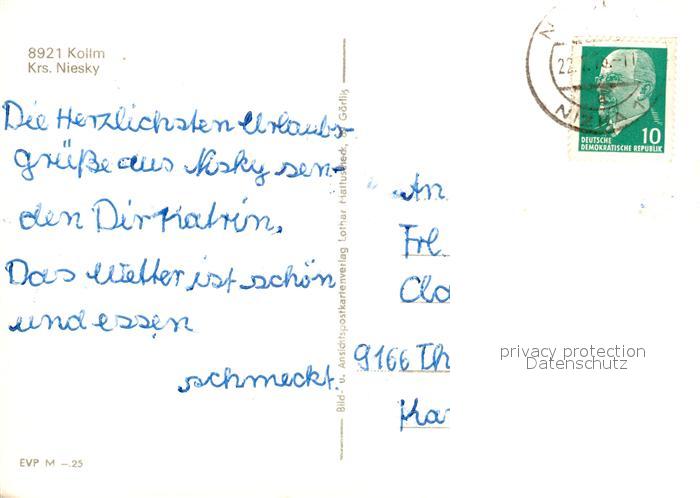 8921 Kollm
Krs. Niesky
Die Herzlichsten Urlaubs-
grüße aus Nisky sen-
den Dir Katrin.
Das Wetter ist schön
und essen
schmeckt.
EVP M —.25
Bild- u. Ansichtspostkartenverlag Lothar Hattuscheck, Görlitz
An
Frl.
9166 Th
10
DEUTSCHE
DEMOKRATISCHE REPUBLIK
privacy protection
Datenschutz